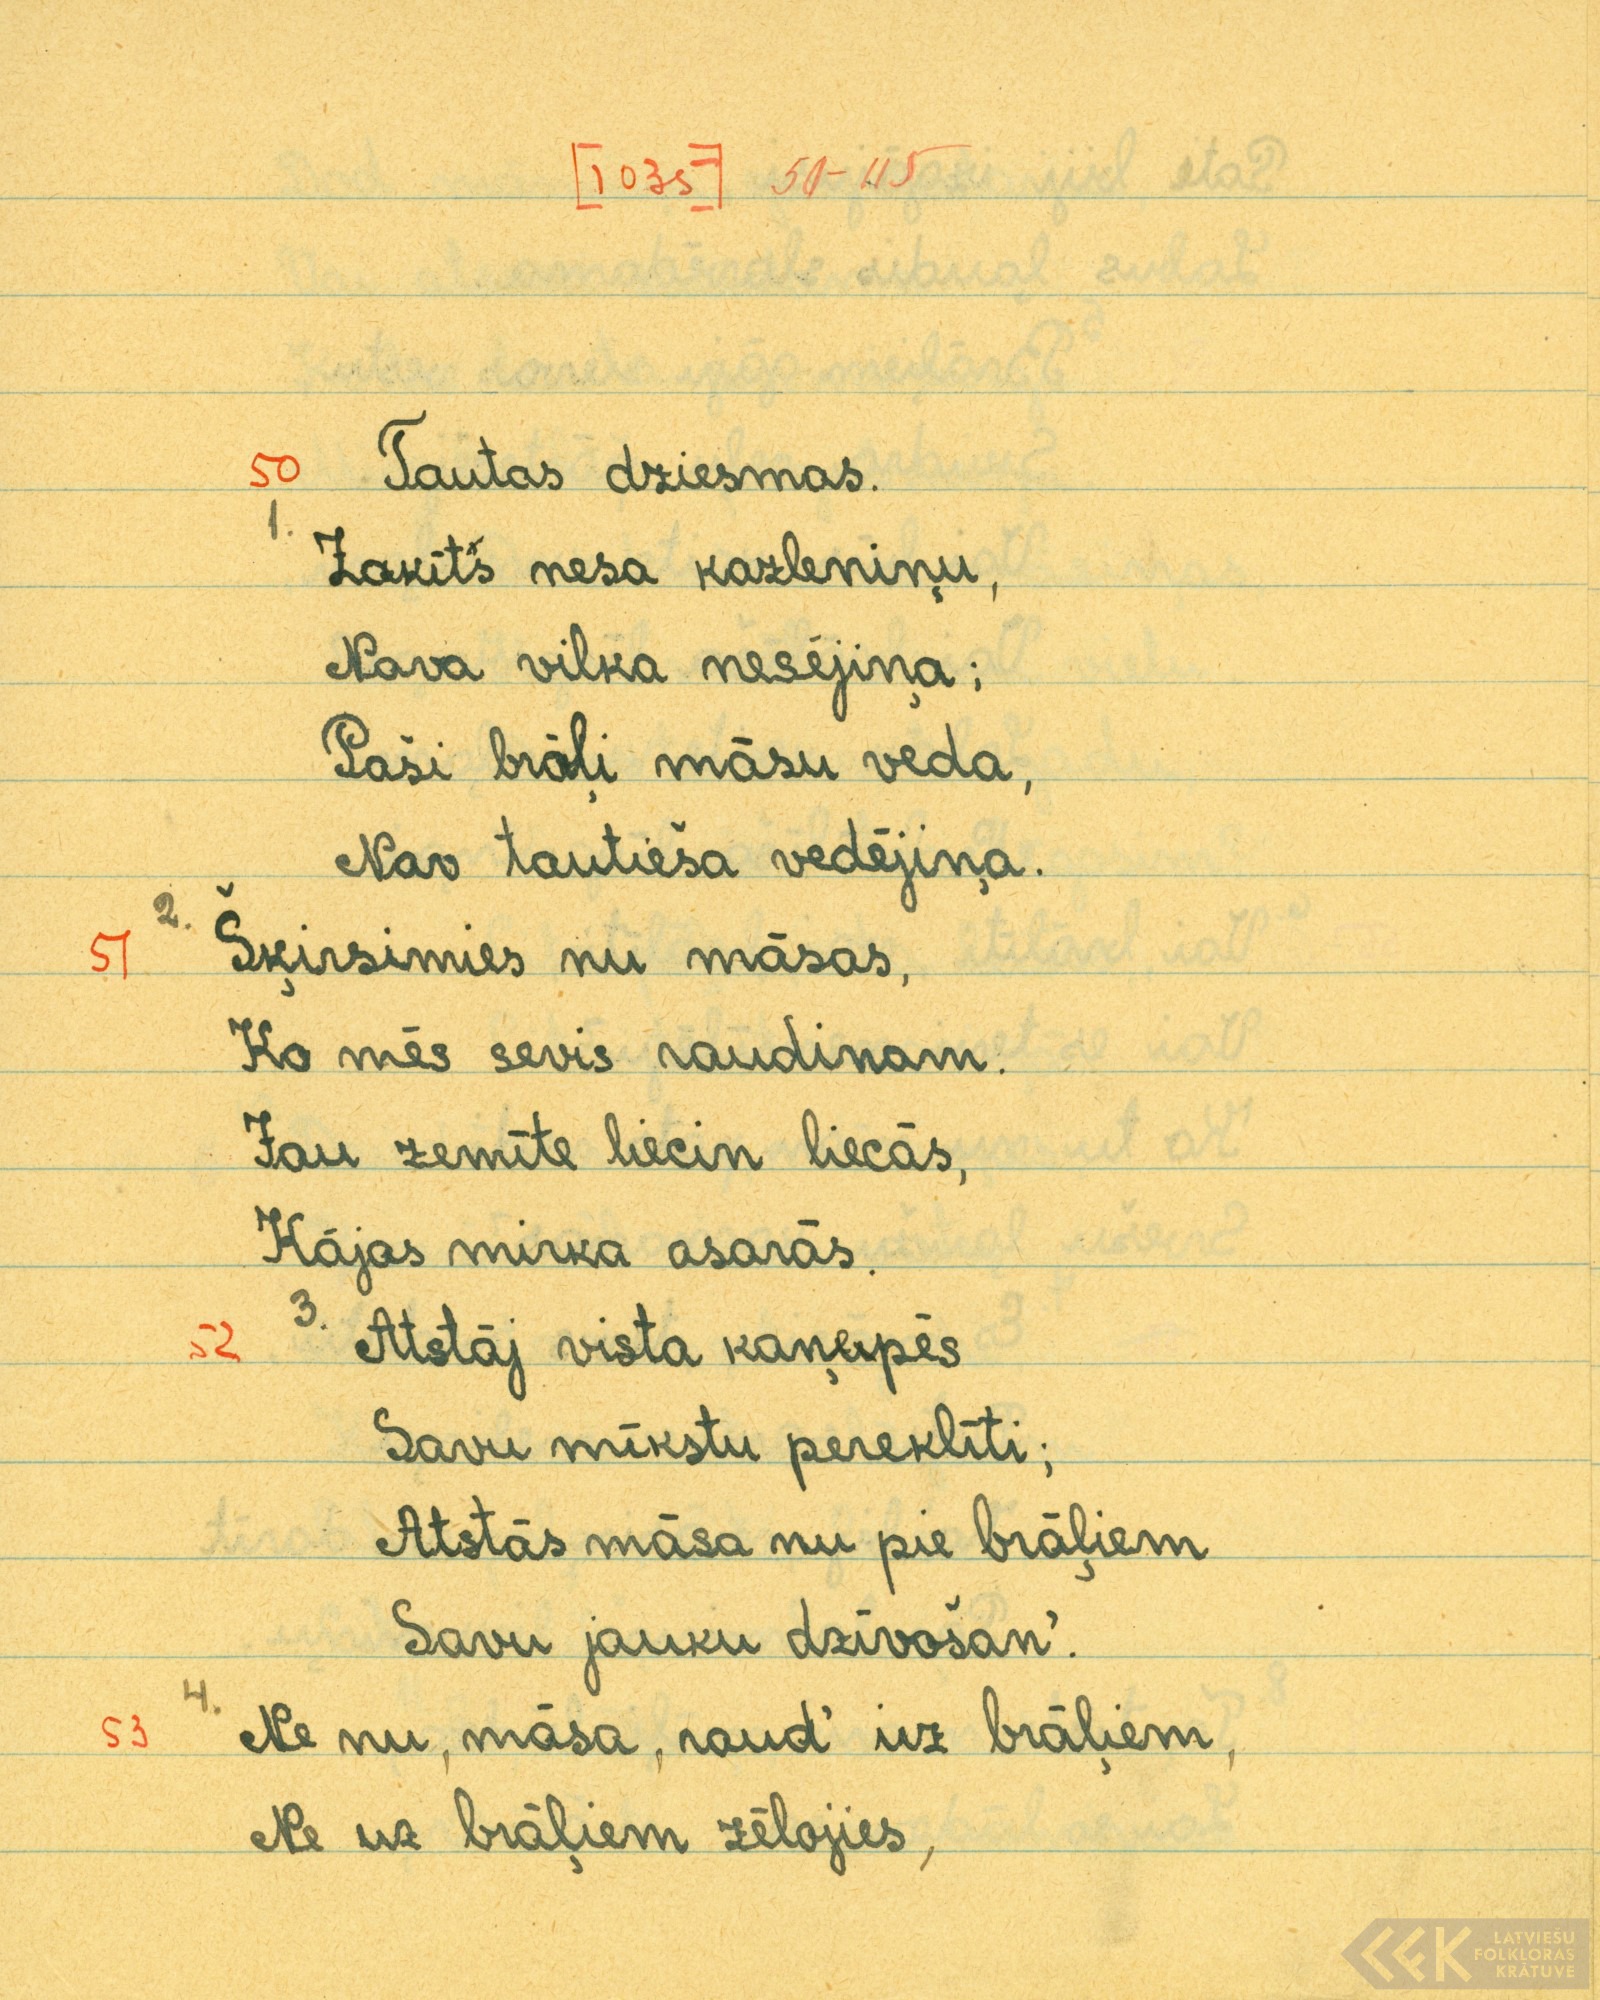 [1035] 50-115
50 Tautas dziesmas.
1. Zakīt's nesa kazleniņu,
Nava vilka nesējiņa;
Paši brāļi māsu veda,
Nav tautieša vedējiņa.
51 2. Šķirsimies nu māsas,
Ko mēs sevis raudinam.
Jau zemīte liecin liecās,
Kājas mirka asarās.
52 3. Atstāj vista kaņepēs
Savu mīkstu pereklīti;
Atstās māsa nu pie brāļiem
Savu jauku dzīvošan'.
53 4. Ne nu, māsa, raud' uz brāļiem,
Ne uz brāļiem zēlojies,
LATVIEŠU
FOLKLORAS
KRĀTUVE